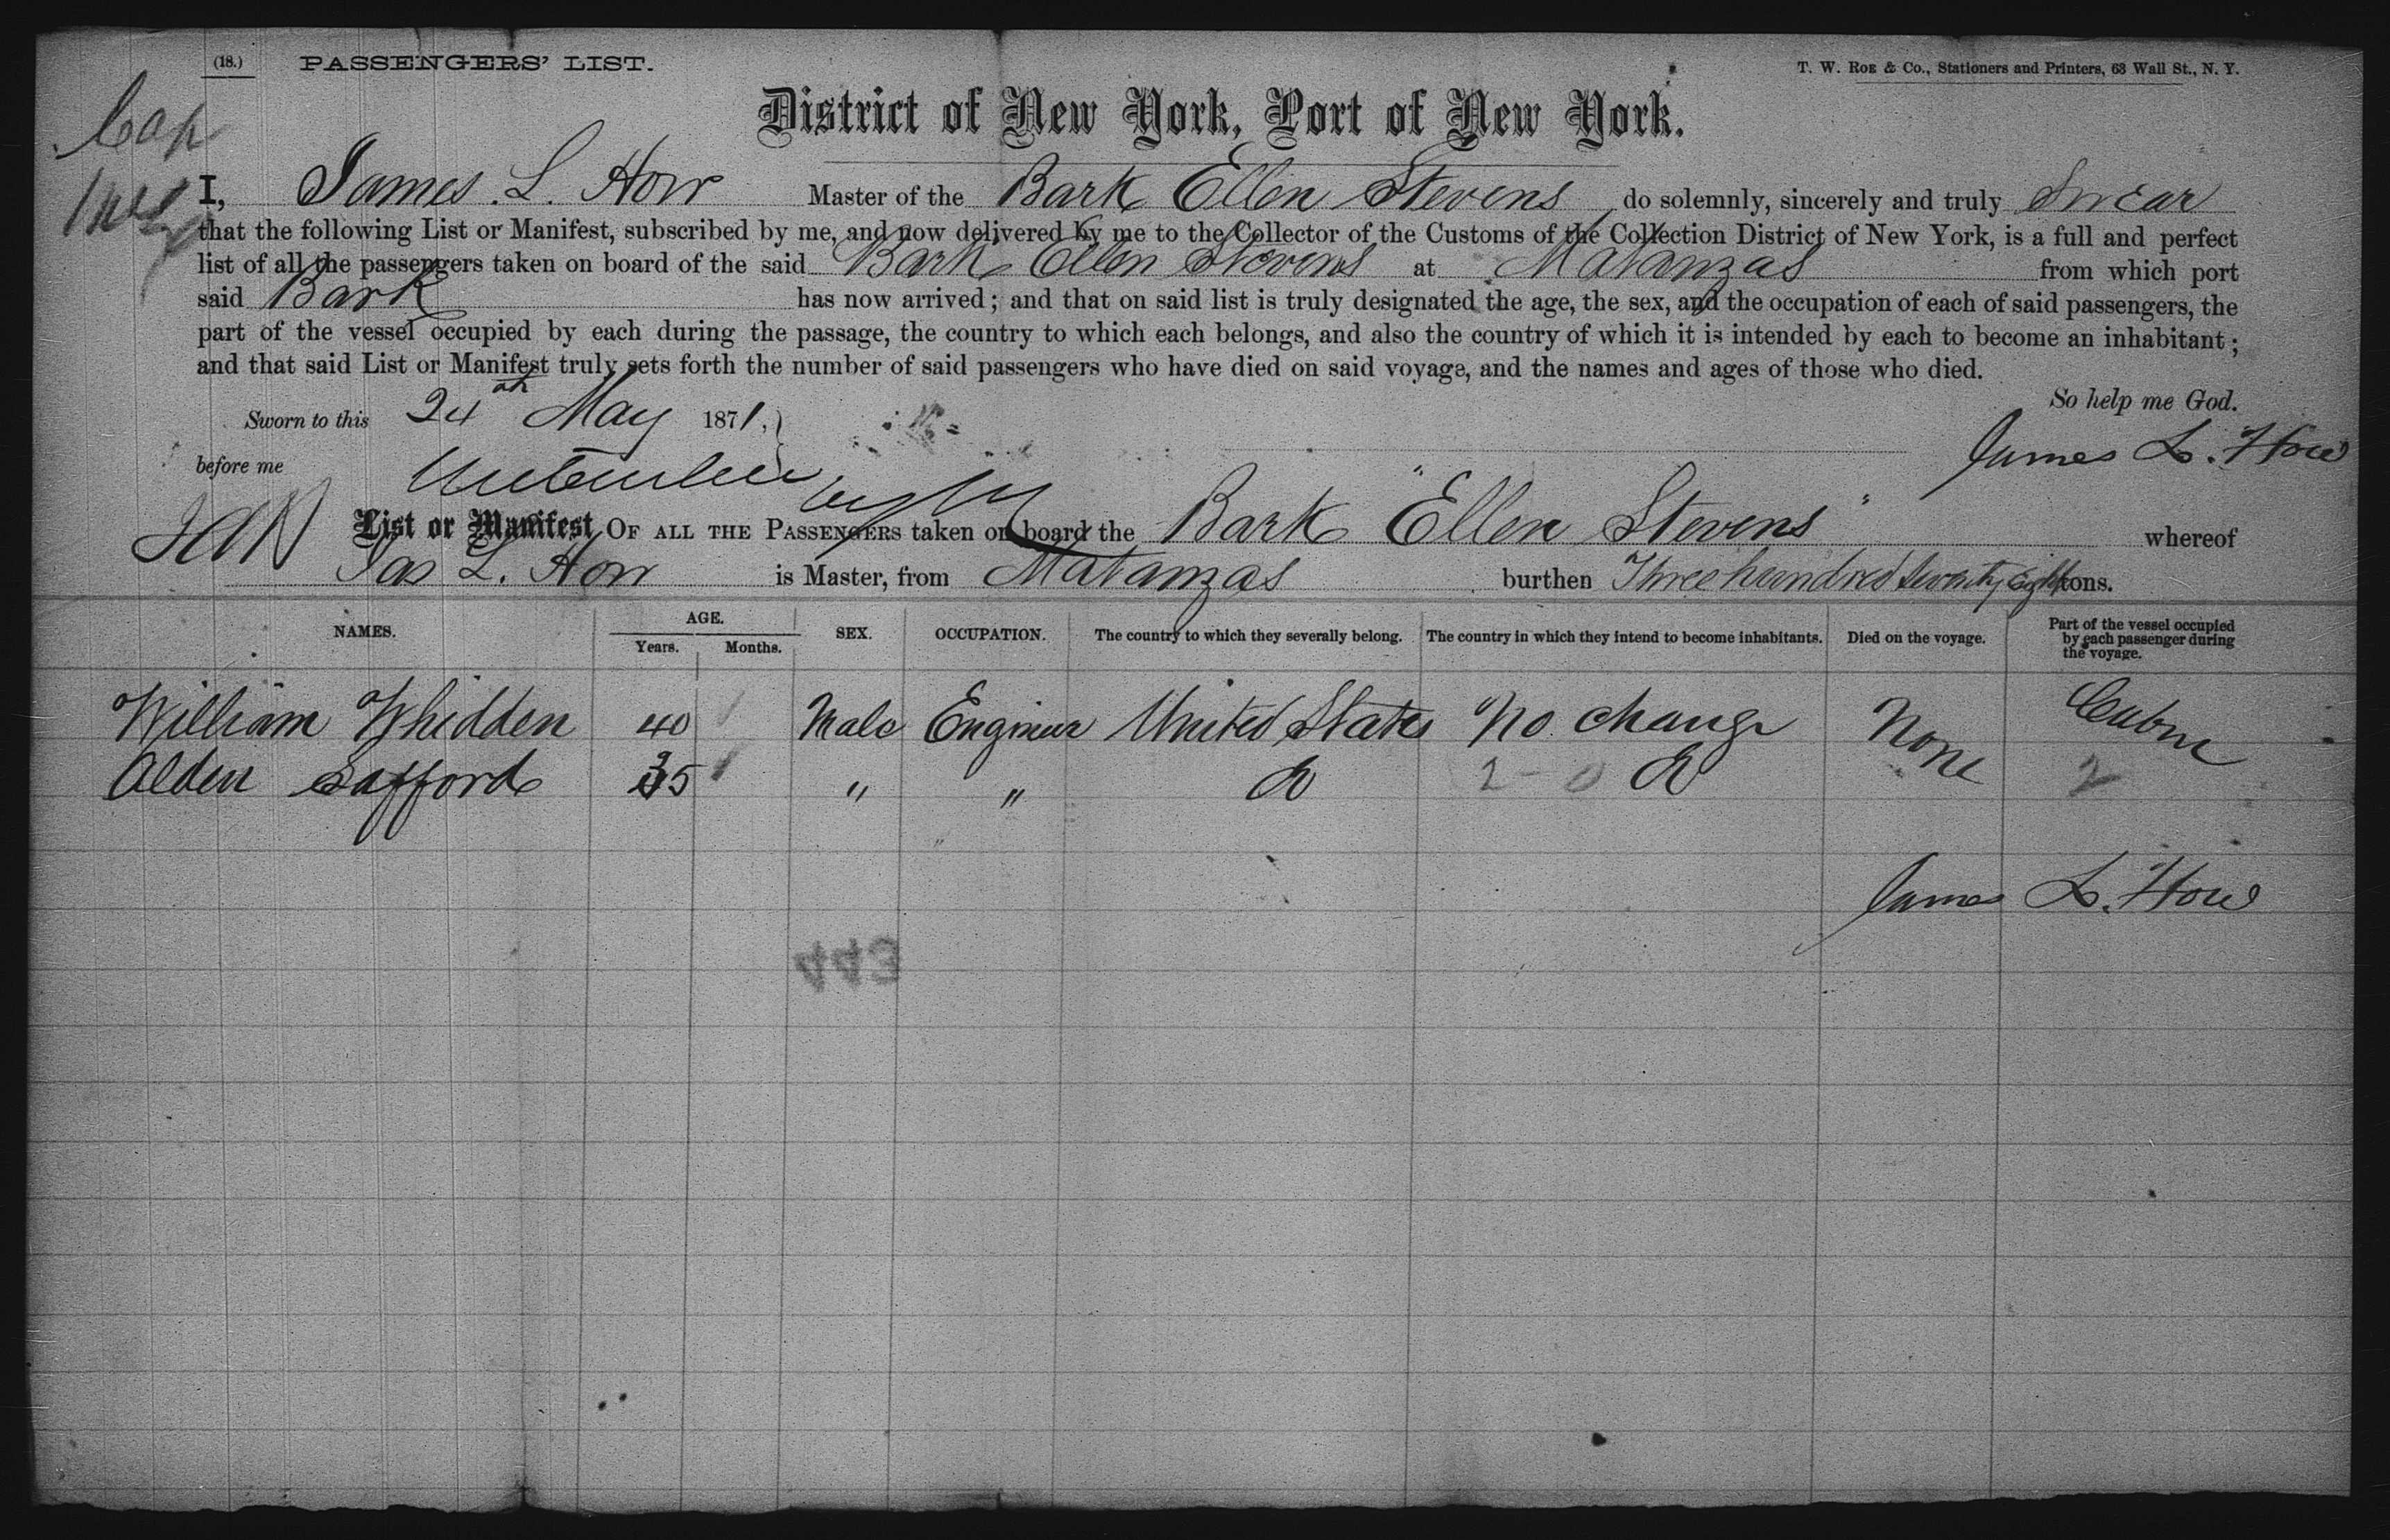 (18.) PASSENGERS' LIST.
T. W. ROE & Co., Stationers and Printers, 63 Wall St., N. Y.
District of New York, Port of New York.
I, James. L. How Master of the Bark Ellen Stevens do solemnly, sincerely and truly Swear
that the following List or Manifest, subscribed by me, and now delivered by me to the Collector of the Customs of the Collection District of New York, is a full and perfect
list of all the passengers taken on board of the said Bark Ellen Stevens at Matanzas from which port
said Bark has now arrived; and that on said list is truly designated the age, the sex, and the occupation of each of said passengers, the
part of the vessel occupied by each during the passage, the country to which each belongs, and also the country of which it is intended by each to become an inhabitant;
and that said List or Manifest truly sets forth the number of said passengers who have died on said voyage, and the names and ages of those who died.
So help me God.
Sworn to this 24th May 1871,
James L. How
before me
List or Manifest OF ALL THE PASSENGERS taken on board the Bark "Ellen Stevens" whereof
Jas L. How is Master, from Matanzas burthen Three hundred seventy Eight tons.
NAMES. AGE. Years. Months. SEX. OCCUPATION. The country to which they severally belong. The country in which they intend to become inhabitants. Died on the voyage. Part of the vessel occupied by each passenger during the voyage.
William Whidden 40 Male Engineer United States No change None Cabin
Alden Safford 35 " " Do 2 - 0 Do 2
James L. How
443